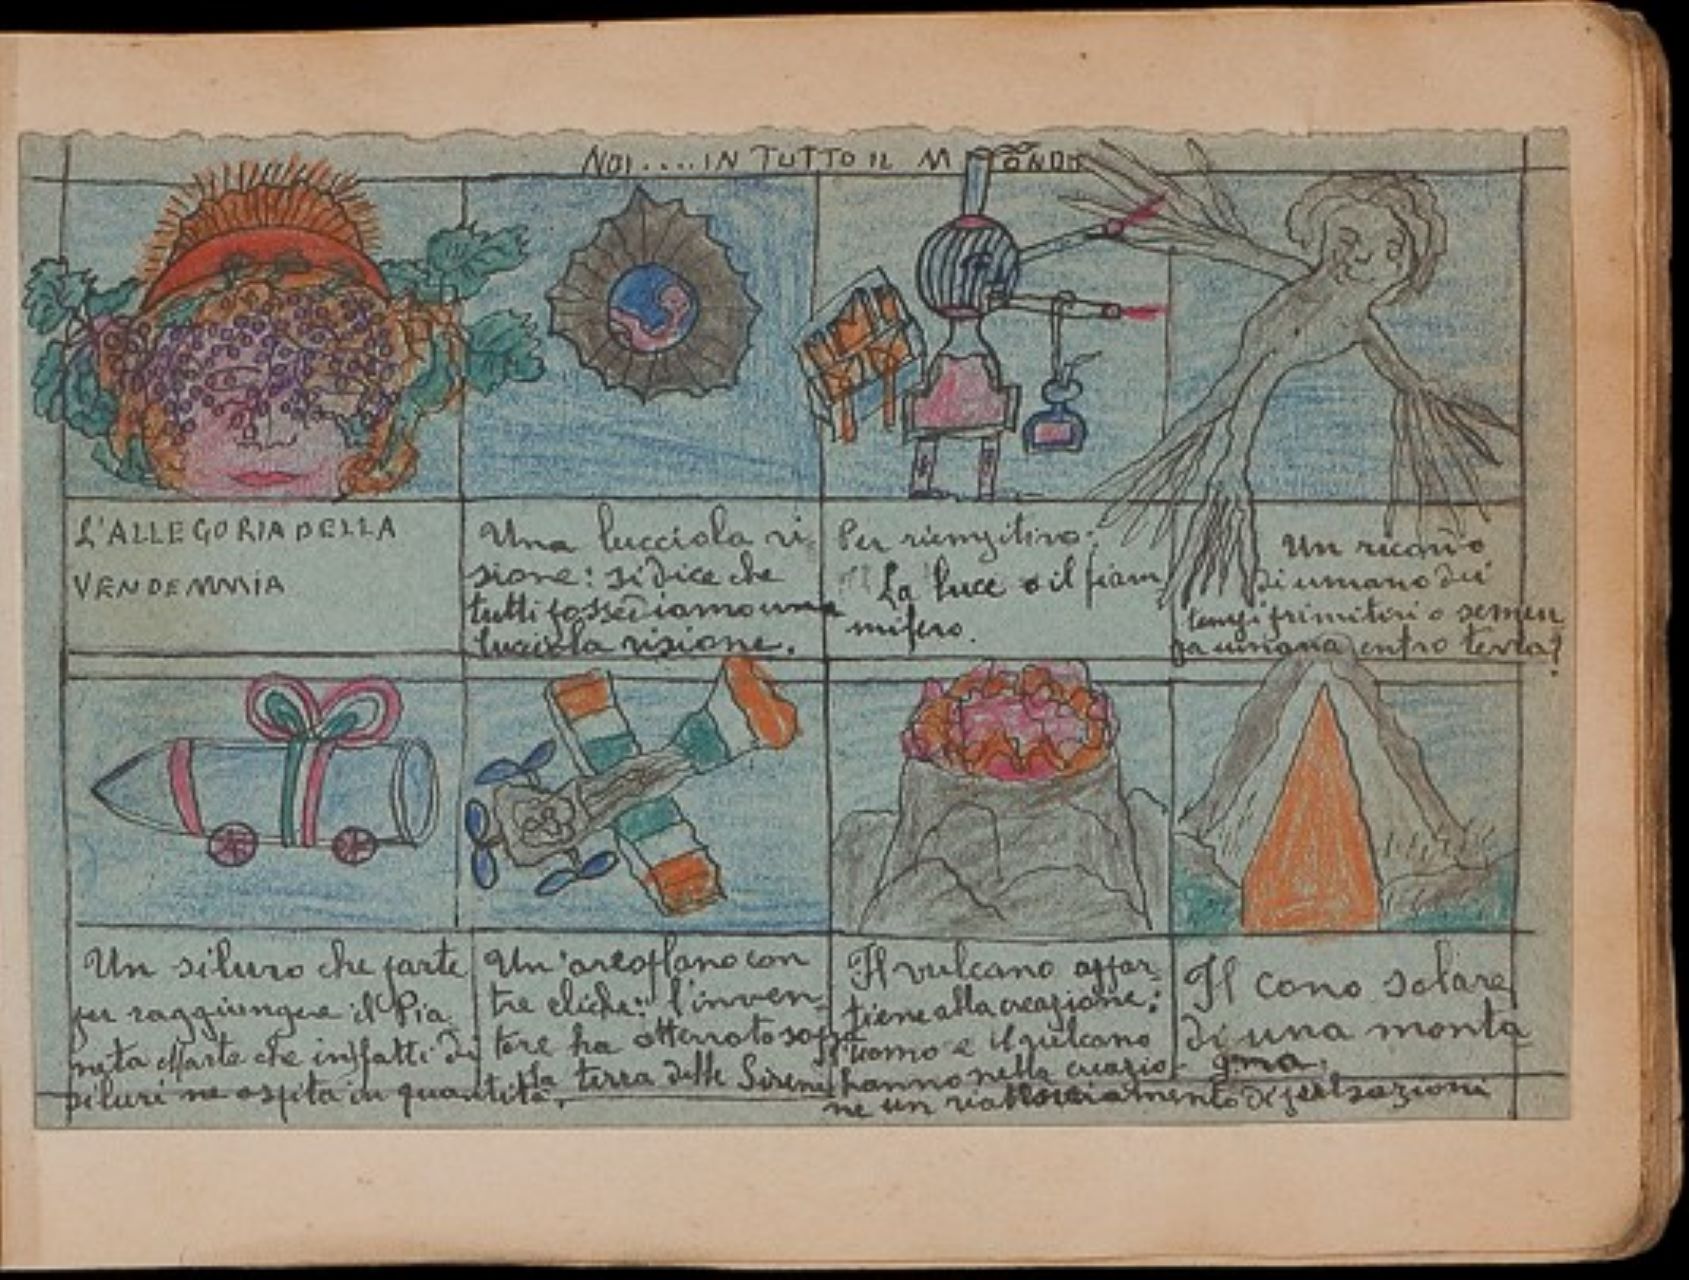 NOI....IN TUTTO IL MONDO
L'ALLEGORIA DELLA
VENDEMMIA
Una lucciola vi
sione: si dice che
tutti possediamo una
lucciola visione.
Per
La luce o il fiam
mifero.
Un
di umano dei
tempi primitivi o semen
za umana entro terra?
Un siluro che parte
per raggiungere il Pia
neta Marte che infatti di
siluri ne ospita in quantità.
Un'areoplano con
tre eliche: l'inven
tore ha atterrato sopra
la terra delle Sirene
Il vulcano appar
tiene alla creazione:
l'uomo e il vulcano
hanno nella creazio
ne un
Il cono solare
di una monta
gna.